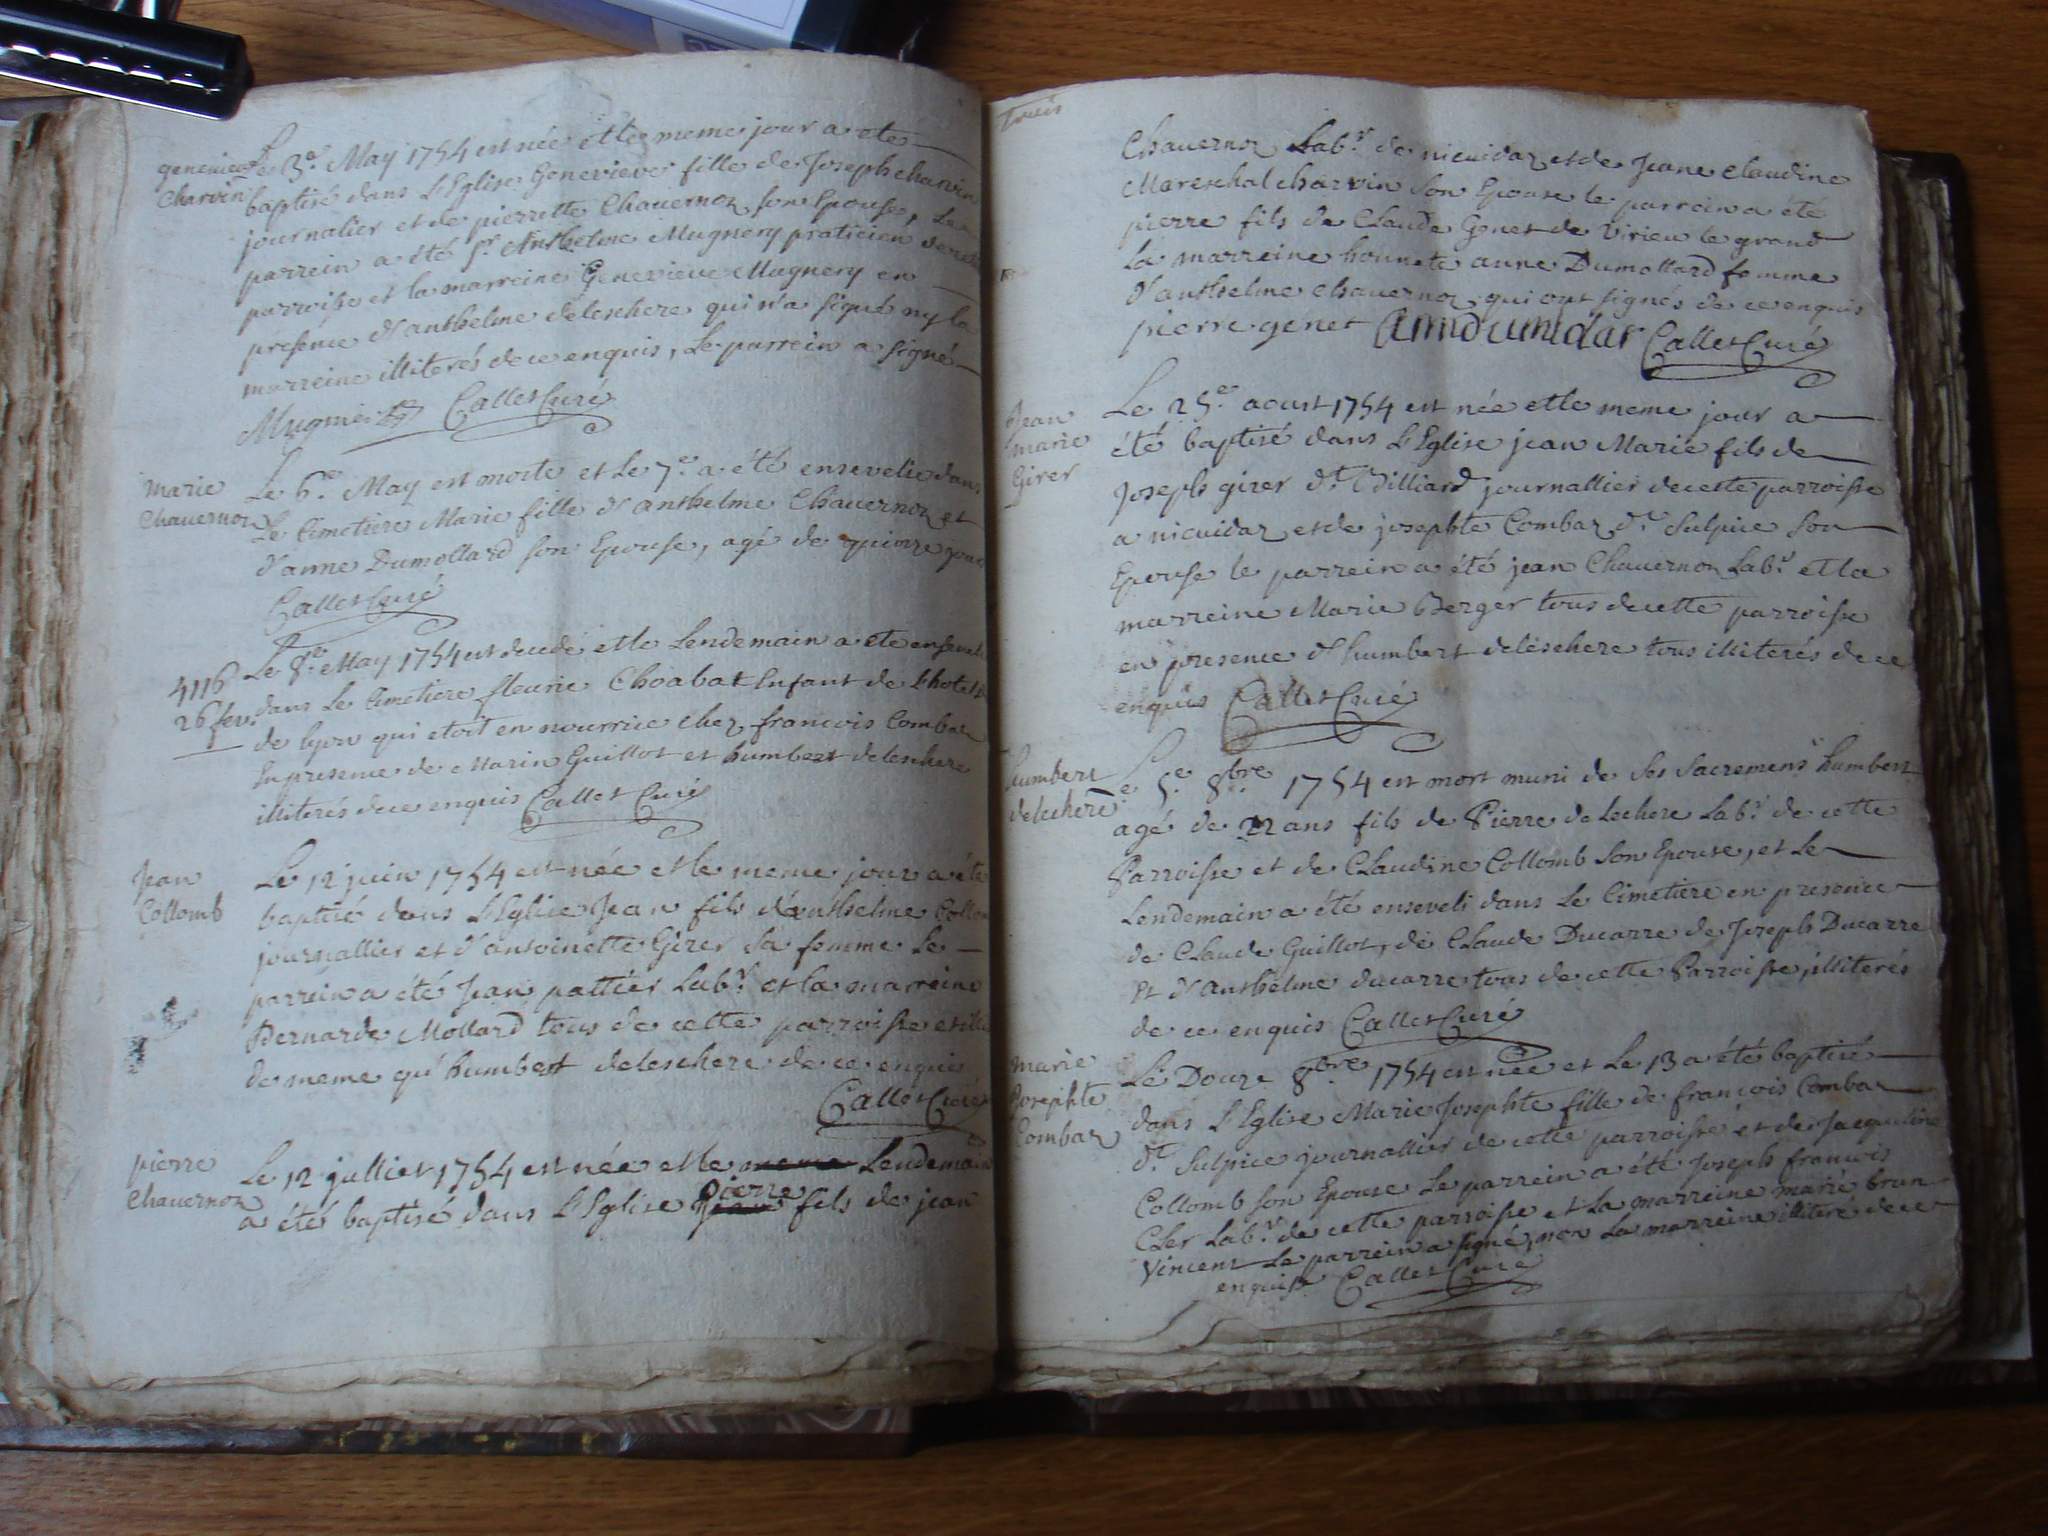 genevieve
Charvin
Le 3e. May 1754 est née et le meme jour a ete
baptisé dans L'Eglise Genevieve fille de Joseph charvin
journalier et de pierrette Chavernoz son Epouse, Le
parrein a été sr. Anthelme Mugnery praticien de cette
parroisse et la marreine Genevieve Mugnery en
presence d'anthelme deleschere qui n'a signé ny la
marreine illiterés de ce enquis, Le parrein a signé
Callet Curé
marie
Chavernoz
Le 6e. May est morte et Le 7e. a été ensevelie dans
Le Cimetiere Marie fille d'anthelme Chavernoz et
d'anne Dumollard son Epouse, agé de quinze jours
Callet Curé
4116
26 fev.
Le 8e. May 1754 est decedé et le Lendemain a ete enseveli
dans Le Cimetiere fleurie Choabat Enfant de L'hotel D
de lyon qui etoit en nourrice chez francois Combaz
En presence de Marin Guillot et humbert deleschere
illiterés de ce enquis Callet Curé
Jean
Collomb
Le 12 juin 1754 est née et le meme jour a été
baptisé dans L'Eglise Jean fils d'anthelme Collomb
journallier et d'antoinette Girer sa femme Le
parrein a été Jean pattier Labr. et la marreine
Bernarde Mollard tous de cette parroisse et ill
de meme qu'humbert deleschere de ce enquis
Callet Curé
pierre
Chavernoz
Le 12 julliet 1754 est née et le meme Lendemain
pierre
a été baptisé dans L'Eglise Jean fils de jean
trois
Chavernoz Labr. de nicuidaz et de Jeane claudine
Mareschal charvin son Epouse le parrein a été
pierre fils de Claude Genet de Virieu le grand
la marreine honnete anne Dumollard femme
d'anthelme chavernoz qui ont signés de ce enquis
pierre genet Callet Curé
Jean
marie
Girer
Le 25e. aoust 1754 est née et le meme jour a
été baptisé dans L'Eglise jean Marie fils de
Joseph girer dt. Billiard journallier de cette parroisse
a nicuidaz et de josephte Combaz dt. Sulpice son
Epouse le parrein a été jean Chavernoz Labr. et la
marreine Marie Berger tous de cette parroisse
en presence d'humbert deleschere tous illiterés de ce
enquis Callet Curé
humbert
delechere
Le 5e. 8bre 1754 est mort muni de ses sacremens humbert
agé de 22 ans fils de Pierre delechere Labr. de cette
Parroisse et de Claudine Collomb son Epouse, et Le
Lendemain a été enseveli dans Le Cimetiere en presence
de Claude Guillot, de Claude Ducarre de Joseph Ducarre
Et d'anthelme ducarre tous de cette Parroisse illiterés
de ce enquis Callet Curé
marie
Josephte
Combaz
Le Douze 8bre 1754 est née et Le 13 a été baptisé
dans L'Eglise Marie Josephte fille de francois Combaz
dt. Sulpice journallier de cette parroisse et de Jacqueline
Collomb son Epouse Le parrein a été Joseph francois
Cler Labr. de cette parroisse et La marreine marie brun
Vincent Le parrein a signé, non La marreine illiteré de ce
enquise Callet Curé